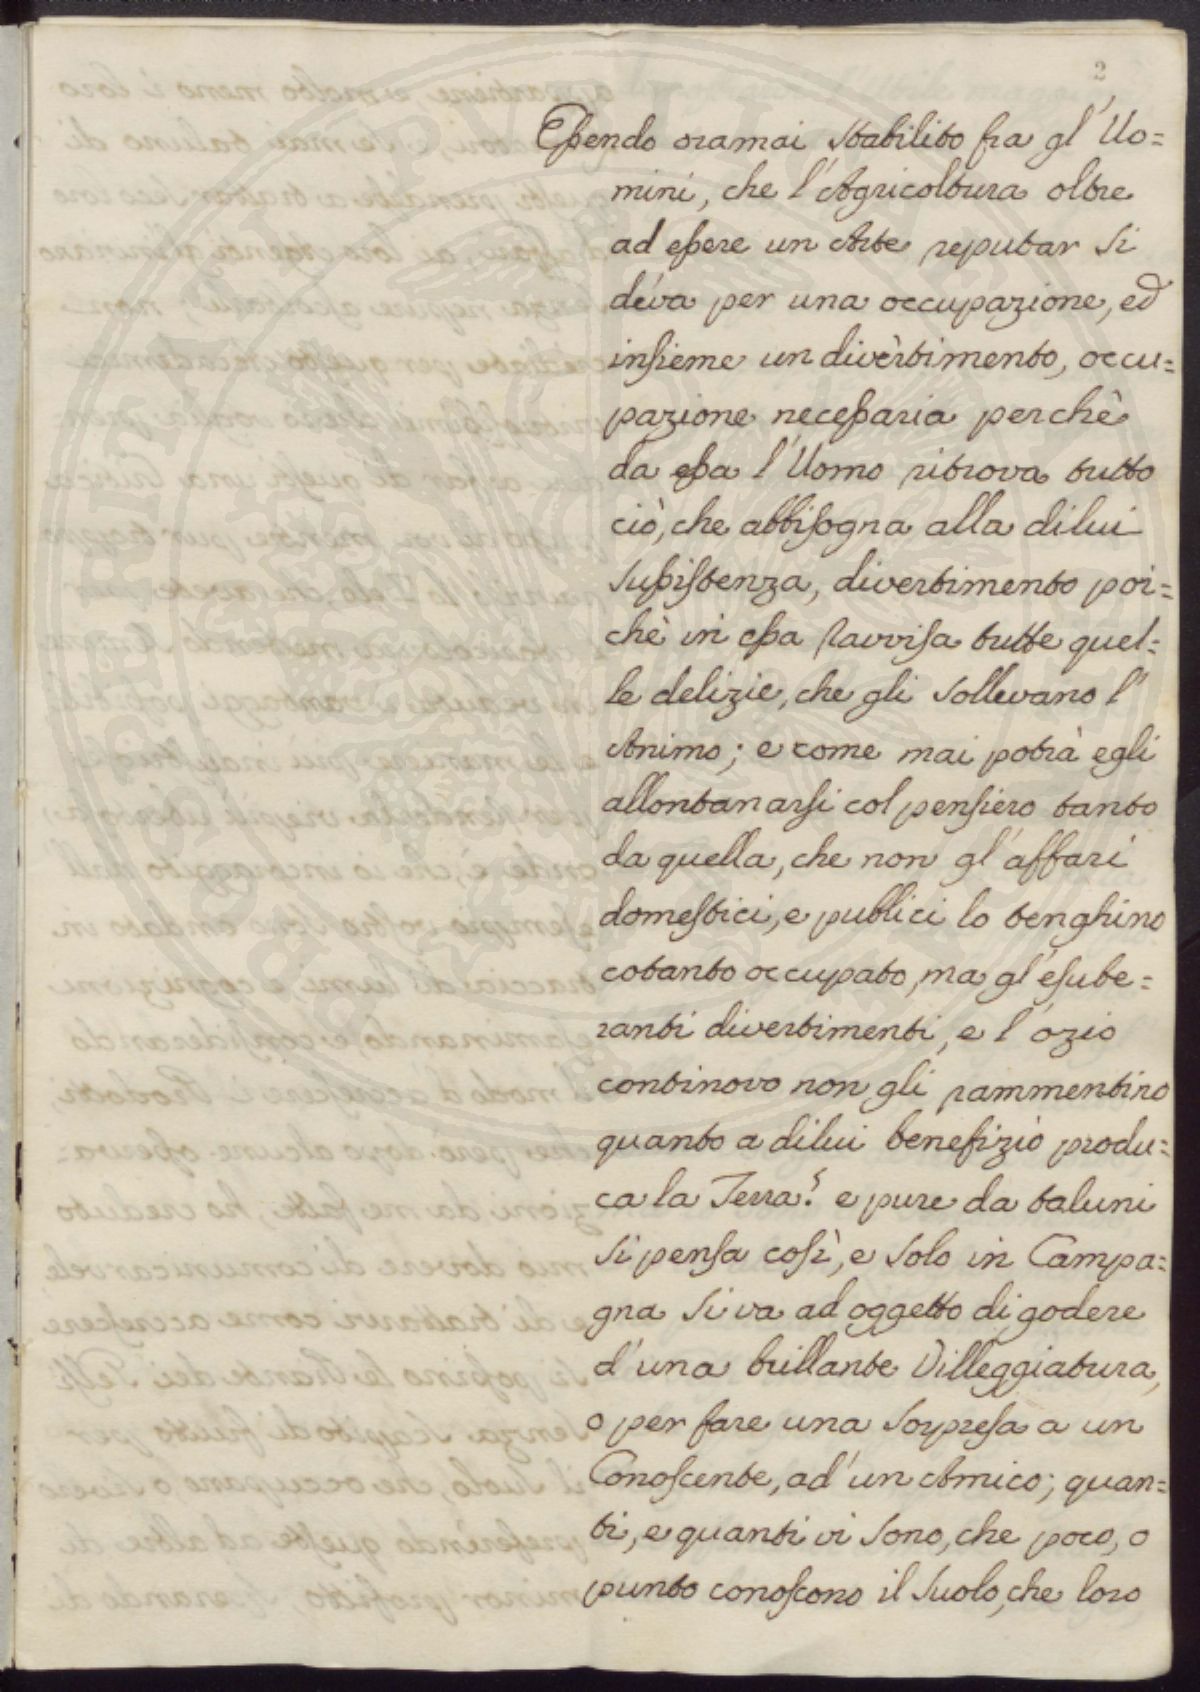 2
Essendo oramai stabilito fra gl'Uo=
mini, che l'Agricoltura oltre
ad essere un Arte reputar si
deva per una occupazione, ed
insieme un divertimento, occu=
pazione necessaria perchè
da essa l'Uomo ritrova tutto
ciò, che abbisogna alla dilui
sussistenza, divertimento poi=
chè in essa ravvisa tutte quel=
le delizie, che gli sollevano l'
Animo; e come mai potrà egli
allontanarsi col pensiero tanto
da quella, che non gl'affari
domestici, e publici lo tenghino
cotanto occupato, ma gl'esube=
ranti divertimenti, e l'ozio
continovo non gli rammentino
quanto a dilui benefizio produ=
ca la Terra? e pure da taluni
si pensa così, e solo in Campa=
gna si va ad oggetto di godere
d'una brillante Villeggiatura,
o per fare una sorpresa a un
Conoscente, ad'un Amico; quan=
ti, e quanti vi sono, che poco, o
punto conoscono il suolo, che loro